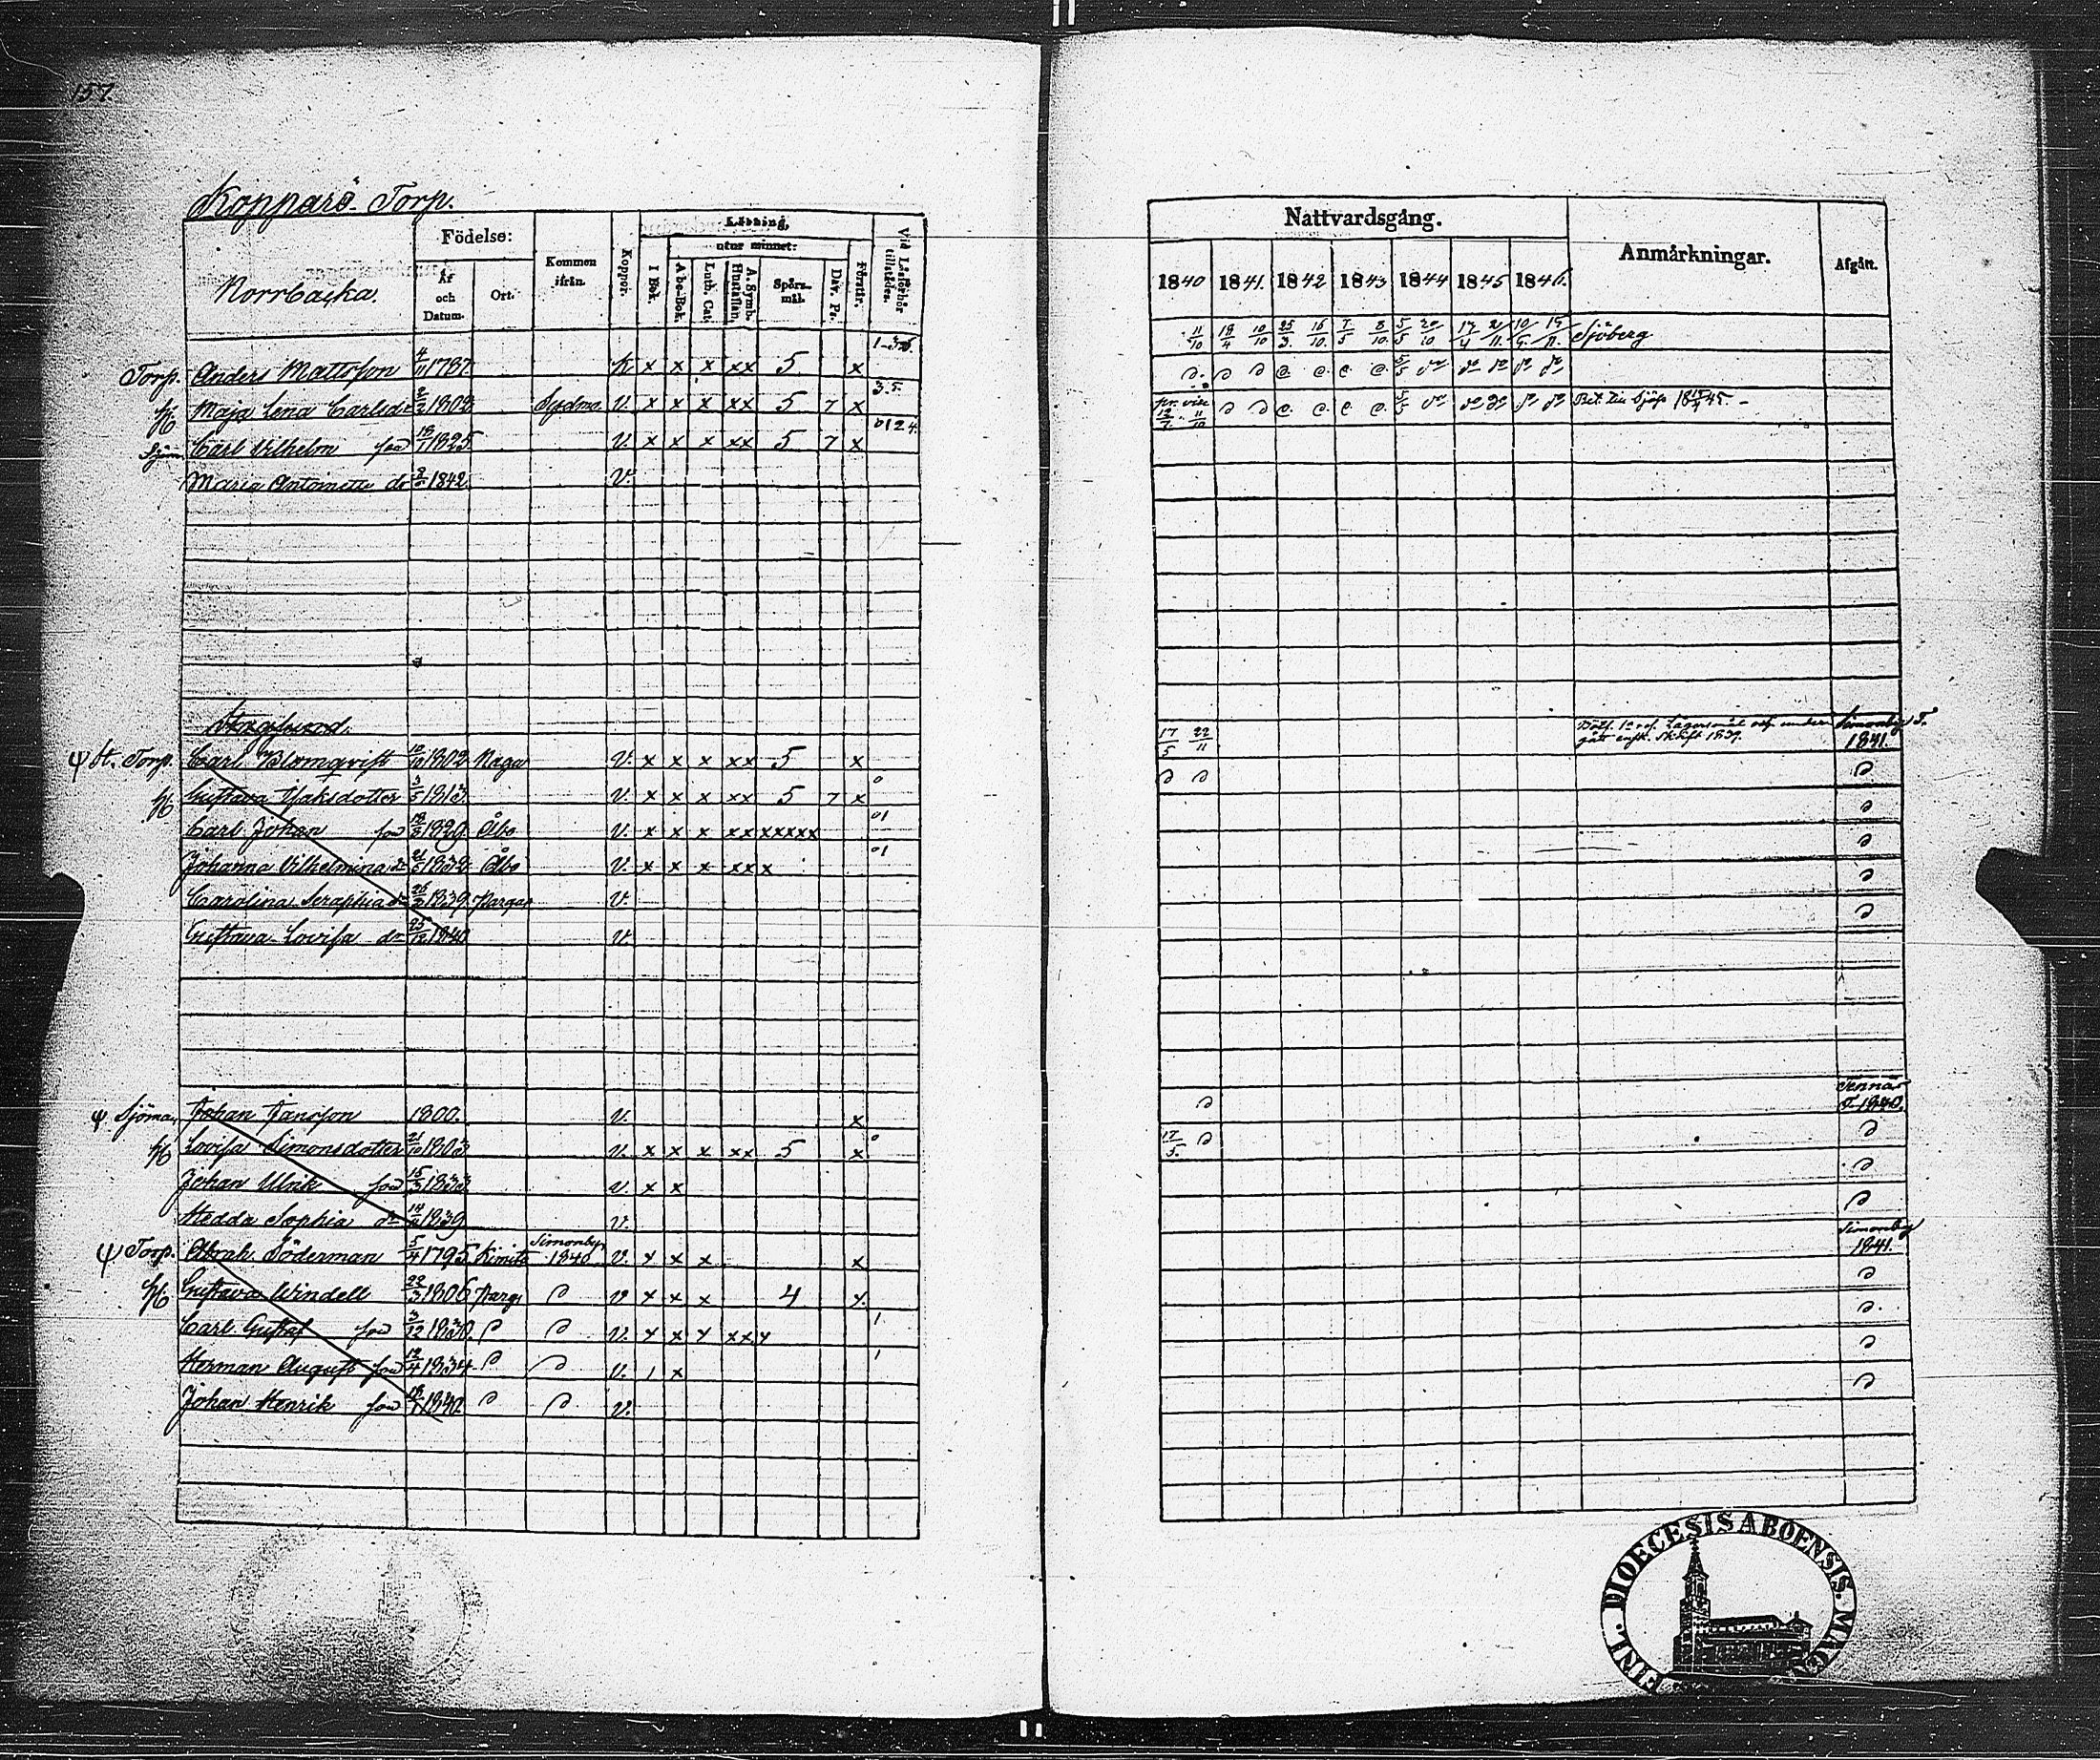 157.
Kopparö Torp.
Norrbacka.
Födelse:
År och Datum.
Ort.
Kommen ifrån.
Koppor.
Läsning,
utur minnet:
I Bok.
Abc-Bok.
Luth. Cat.
A. Symb. Hustaflan.
Spörsmål.
Dav. Ps.
Förstår.
Vid Läsförhör tillstädes.
Torp. Anders Mattsson 4/11 1787. K x x x xx 5 x
H Maja Lena Carlsdr 2/2 1802 V. x x x xx 5 7 x 3.5.
Sjöm Carl Vilhelm son 18/1 1825 V. x x x xx 5 7 x 0124.
Maria Antoinette dr 1842. V.
Skoglund.
ψ St. Torp. Carl Blomqvist 12/10 1802 Nagu V. x x x xx 5 x
H Gustava Isaksdotter 3/5 1813 V. x x x xx 5 7 x 0
Carl Johan son 18/8 1829. Åbo V. x x x xx xxxxx 01
Johanna Vilhelmina dr 21/5 1832 Åbo V. x x x xx x 01
Carolina Seraphia dr 26/3 1839 Pargas V.
Gustava Lovisa dr 25/12 1840 V.
ψ Sjöman Johan Jansson 1800. V. x
H Lovisa Simonsdotter 21/10 1803 V. x x x xx 5 x 0
Johan Ulrik son 15/3 1833 V. x x
Hedda Sophia dr 1839 V.
ψ Torp. Abrah. Söderman 5/4 1795 Kimito Simonby 1840 V. x x x x
H Gustava Windell 22/3 1806 Parg. D V x x x 4 x
Carl Gustaf son 3/12 1830. D D V. x x x xx x 1
Herman August son 12/4 1834 D D V. 1 x 1
Johan Henrik son 1840 D D V.
Nattvardsgång.
Anmärkningar.
Afgått.
1840 1841. 1842 1843 1844 1845 1846.
11/10 18/4 10/10 25/3. 16/10. 7/5 8/10. 5/5 20/10 Sjöberg
Bet. till Sjöfs
17/5 22/11 Simonby T. 1841.
D D D
D
D
D
D
D
D Tennäs T. 1840.
17/5. D D
D
D
Simonby 1841.
D
D.
D
D
FINL. DIOECESIS ABOENSIS. MAGN